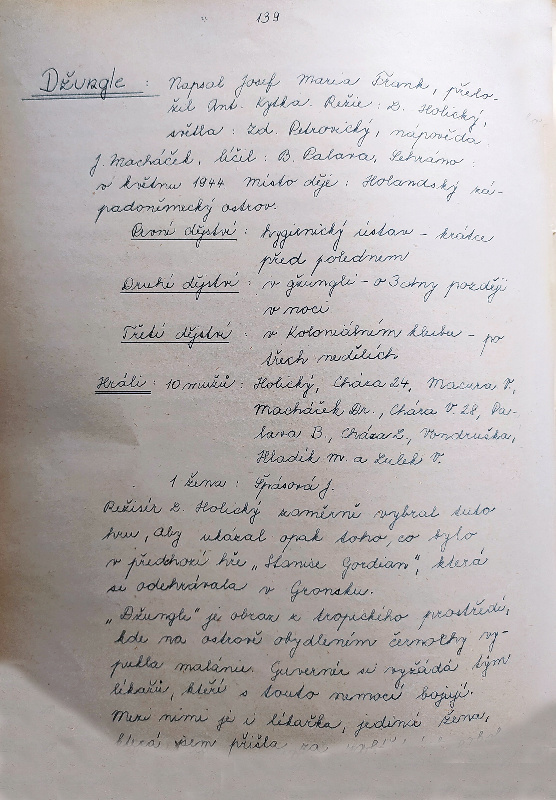 139
Džungle : Napsal Josef Maria Frank, přelo-
žil Ant. Kytka. Režie: B. Holický,
světla : Zd. Petrovický, nápověda :
J. Macháček, líčil : B. Palava, Sehráno :
v květnu 1944. Místo děje : Holandský zá-
padoněmecký ostrov.
První dějství : hygienický ústav – krátce
před polednem
Druhé dějství : v džungli – o 3 dny později
v noci
Třetí dějství : v Koloniálním klubu – po
třech nedělích
Hráli : 10 mužů : Holický, Cháza 24, Macura V.,
Macháček Dr., Cháza V. 28, Pa-
lava B., Cháza L., Vondruška,
Hladík m. a Lulek V.
1 žena : Spásová J.
Režisér B. Holický záměrně vybral tuto
hru, aby ukázal opak toho, co bylo
v předchozí hře „Stanice Gordian“, která
se odehrávala v Gronsku.
„Džungle“ je obraz z tropického prostředí,
kde na ostrově obydleném černochy vy-
pukla malárie. Guvernér si vyžádá tým
lékařů, kteří s touto nemocí bojují.
Mezi nimi je i lékařka, jediná žena,
která sem přišla za